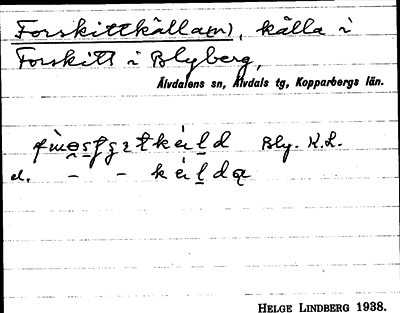 Forskittkälla(n), källa i
Forskitt i Blyberg,
Älvdalens sn, Älvdals tg, Kopparbergs län.
Bly. K.L.
el. – –
HELGE LINDBERG 1938.